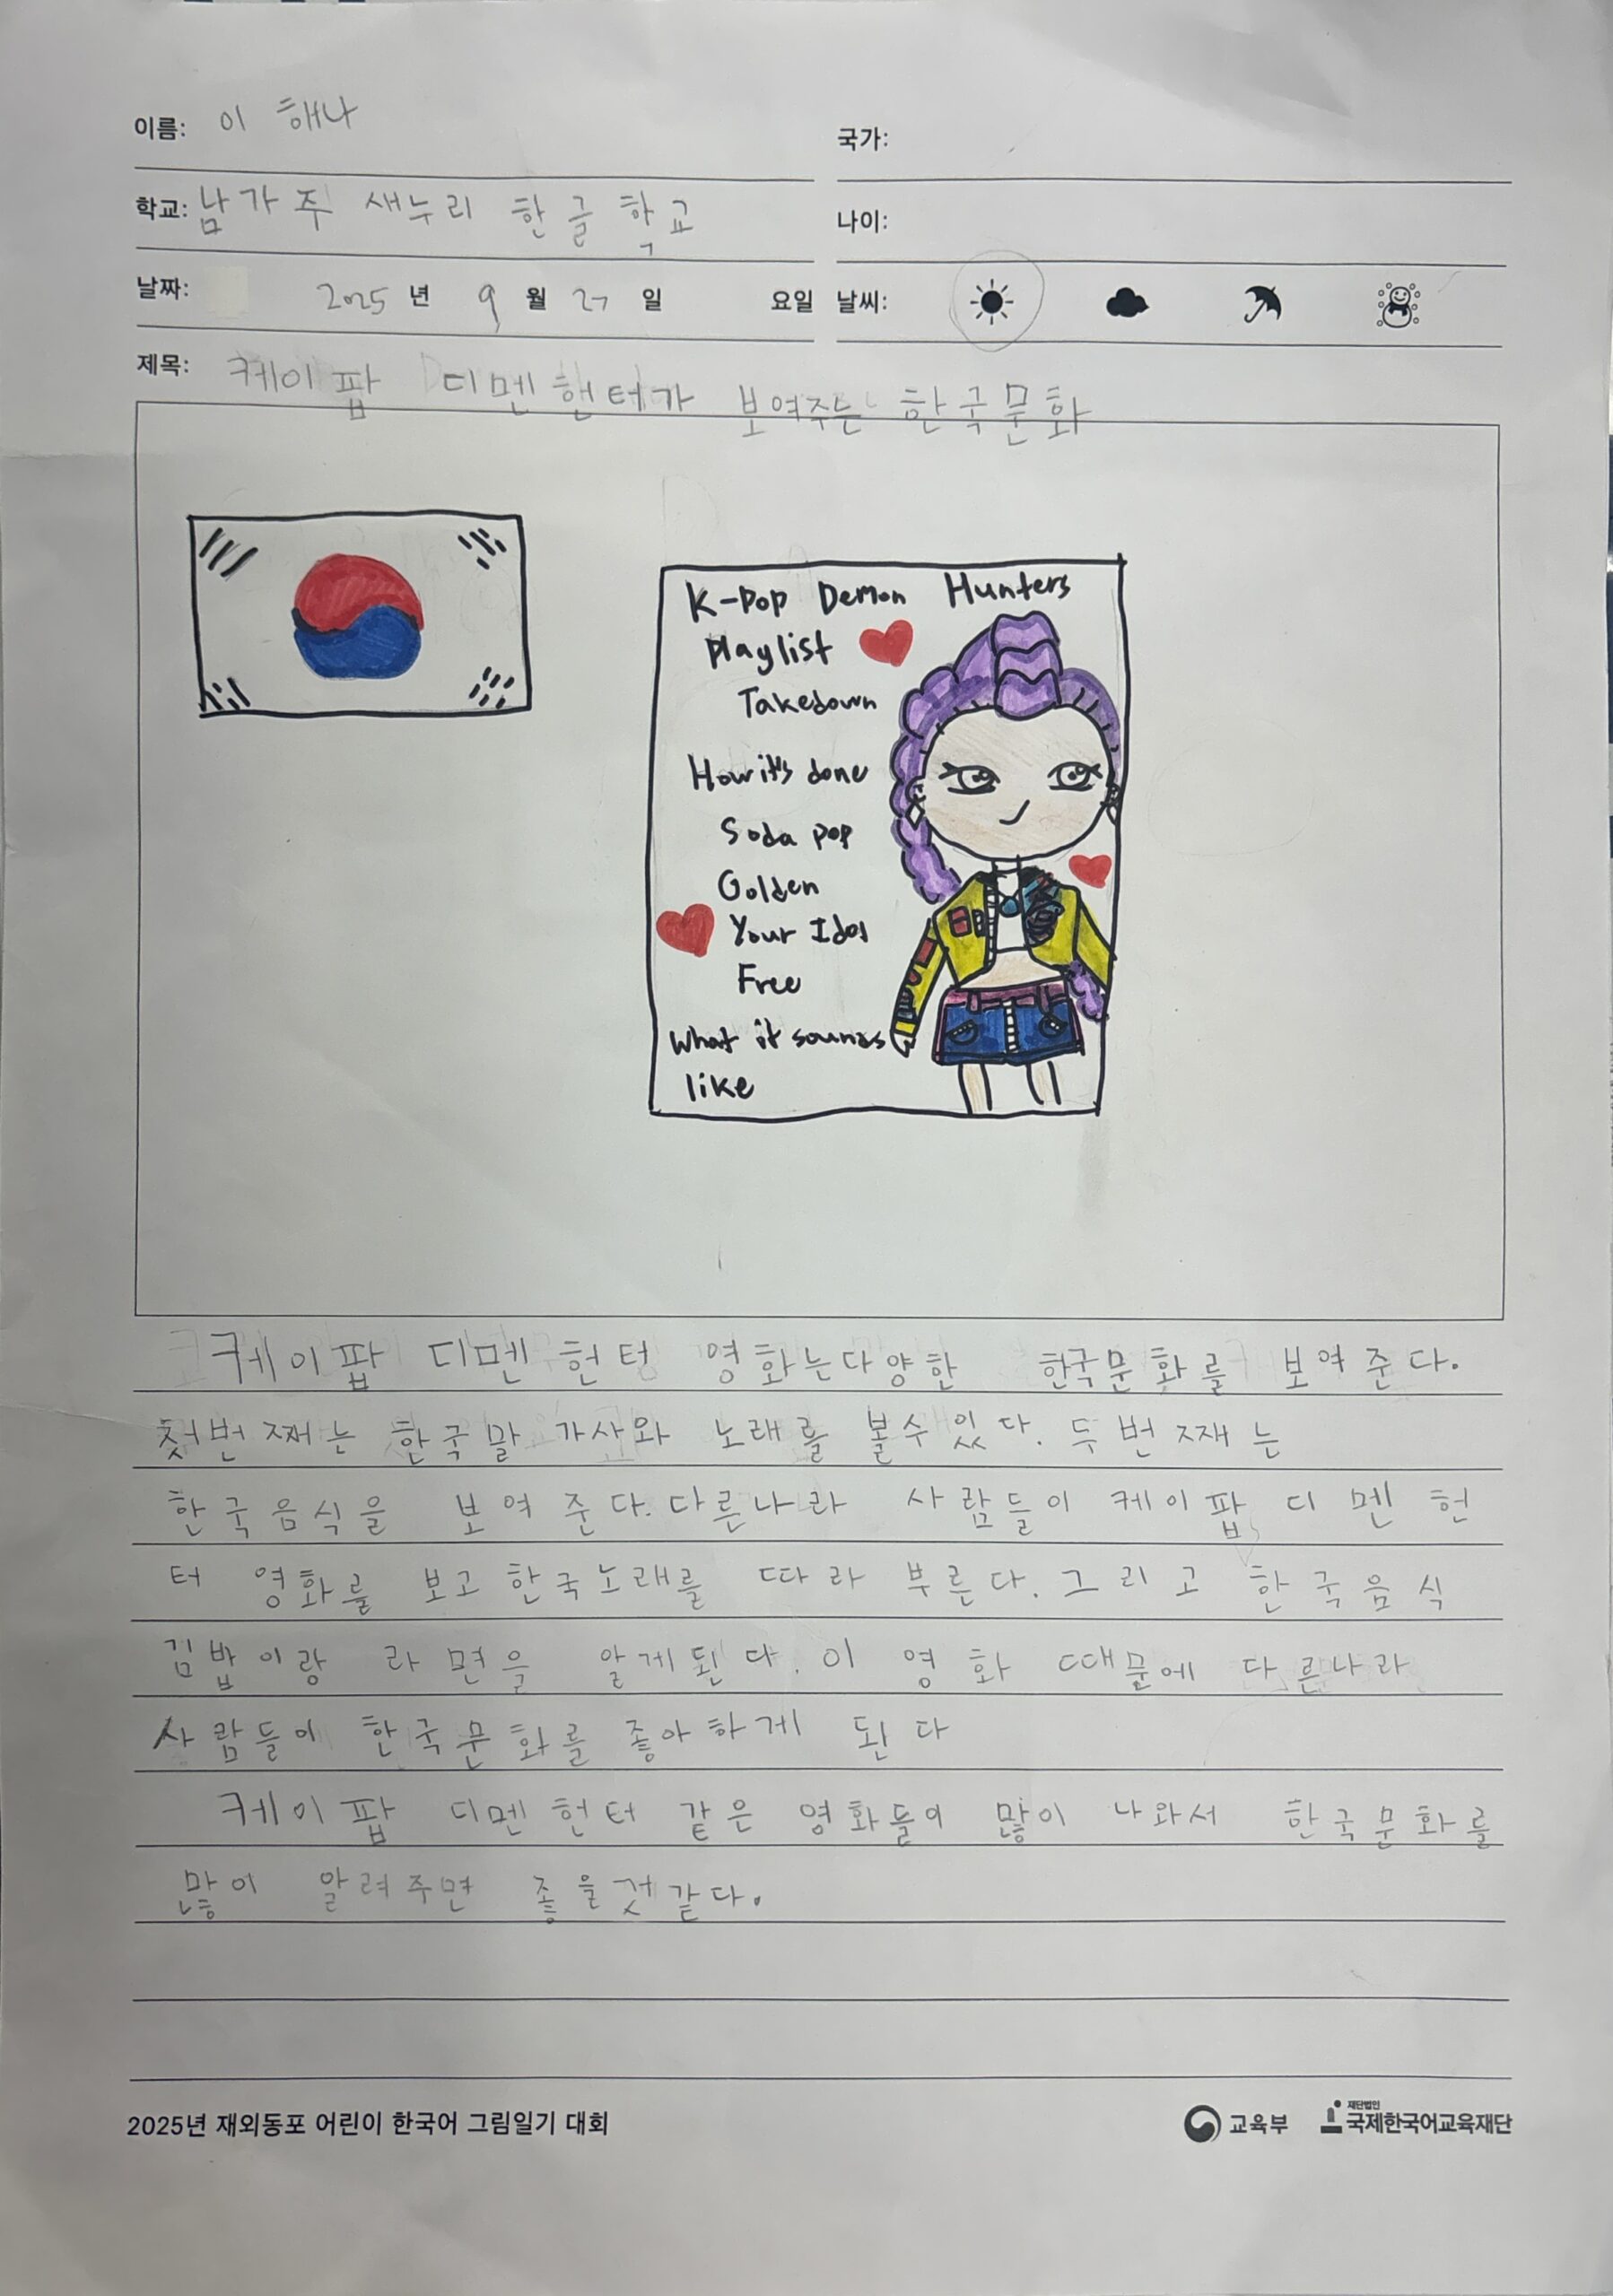 이름: 이 해나
국가:
학교: 남가주 새누리 한글 학교
나이:
날짜: 2025 년 9 월 27 일 요일 날씨:
제목: 케이팝 디멘 헌터가 보여주는 한국문화
K-Pop Demon Hunters
Playlist
Takedown
How it's done
Soda pop
Golden
Your Idol
Free
What it sounds
like
케이팝 디멘 헌터 영화는 다양한 한국문화를 보여 준다.
첫번 째는 한국말 가사와 노래를 볼수 있다. 두 번 째 는
한국음식을 보여 준다. 다른나라 사람들이 케이팝 디 멘 헌
터 영화를 보고 한국노래를 따라 부른다. 그리고 한국음식
김밥이랑 라면을 알게된다. 이 영화 때문에 다른나라
사람들이 한국문화를 좋아하게 된다
케이팝 디멘 헌터 같은 영화들이 많이 나와서 한국문화를
많이 알려주면 좋을것 같다.
2025년 재외동포 어린이 한국어 그림일기 대회
교육부
재단법인
국제한국어교육재단